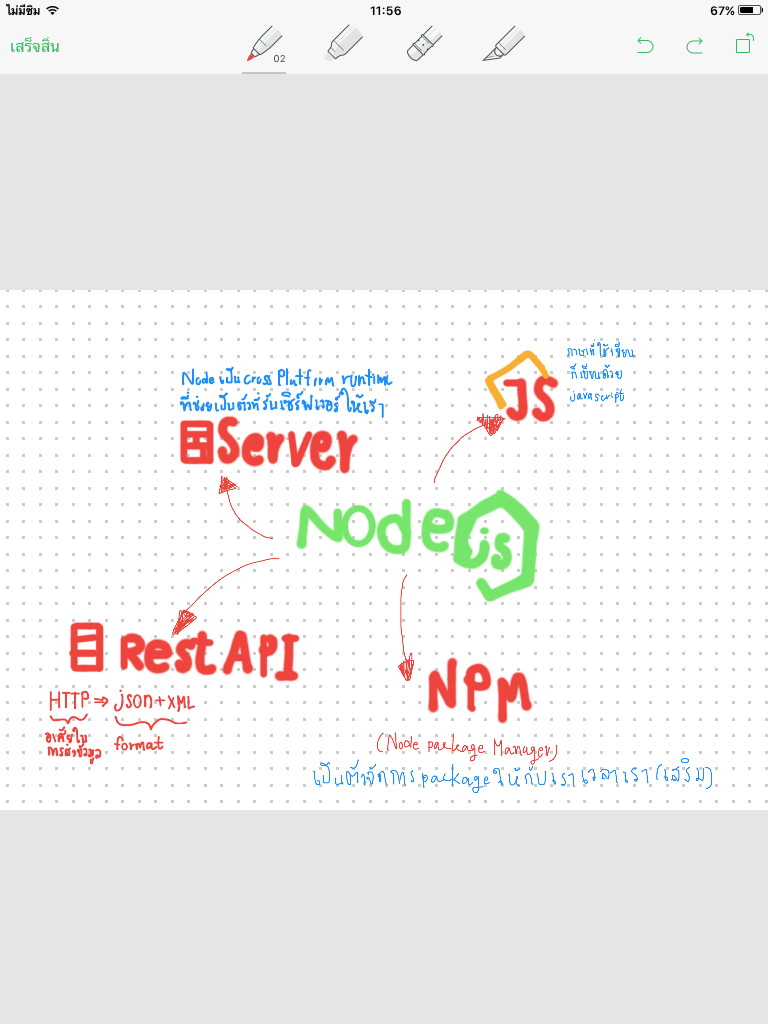 ไม่มีซิม
11:56
67%
เสร็จสิ้น
02
Node เป็น cross Platform runtime
ที่ช่วยเป็นตัวที่รันเซิร์ฟเวอร์ ให้เรา
Server
JS
ภาษาที่ใช้เขียน
ก็เขียนด้วย
javascript
Node js
Rest API
HTTP ⇒ json + XML
อาศัยใน
การส่งข้อมูล
format
NPM
(Node package Manager)
เป็นตัวจัดการ package ให้กับเรา เวลาเรา (เสริม)